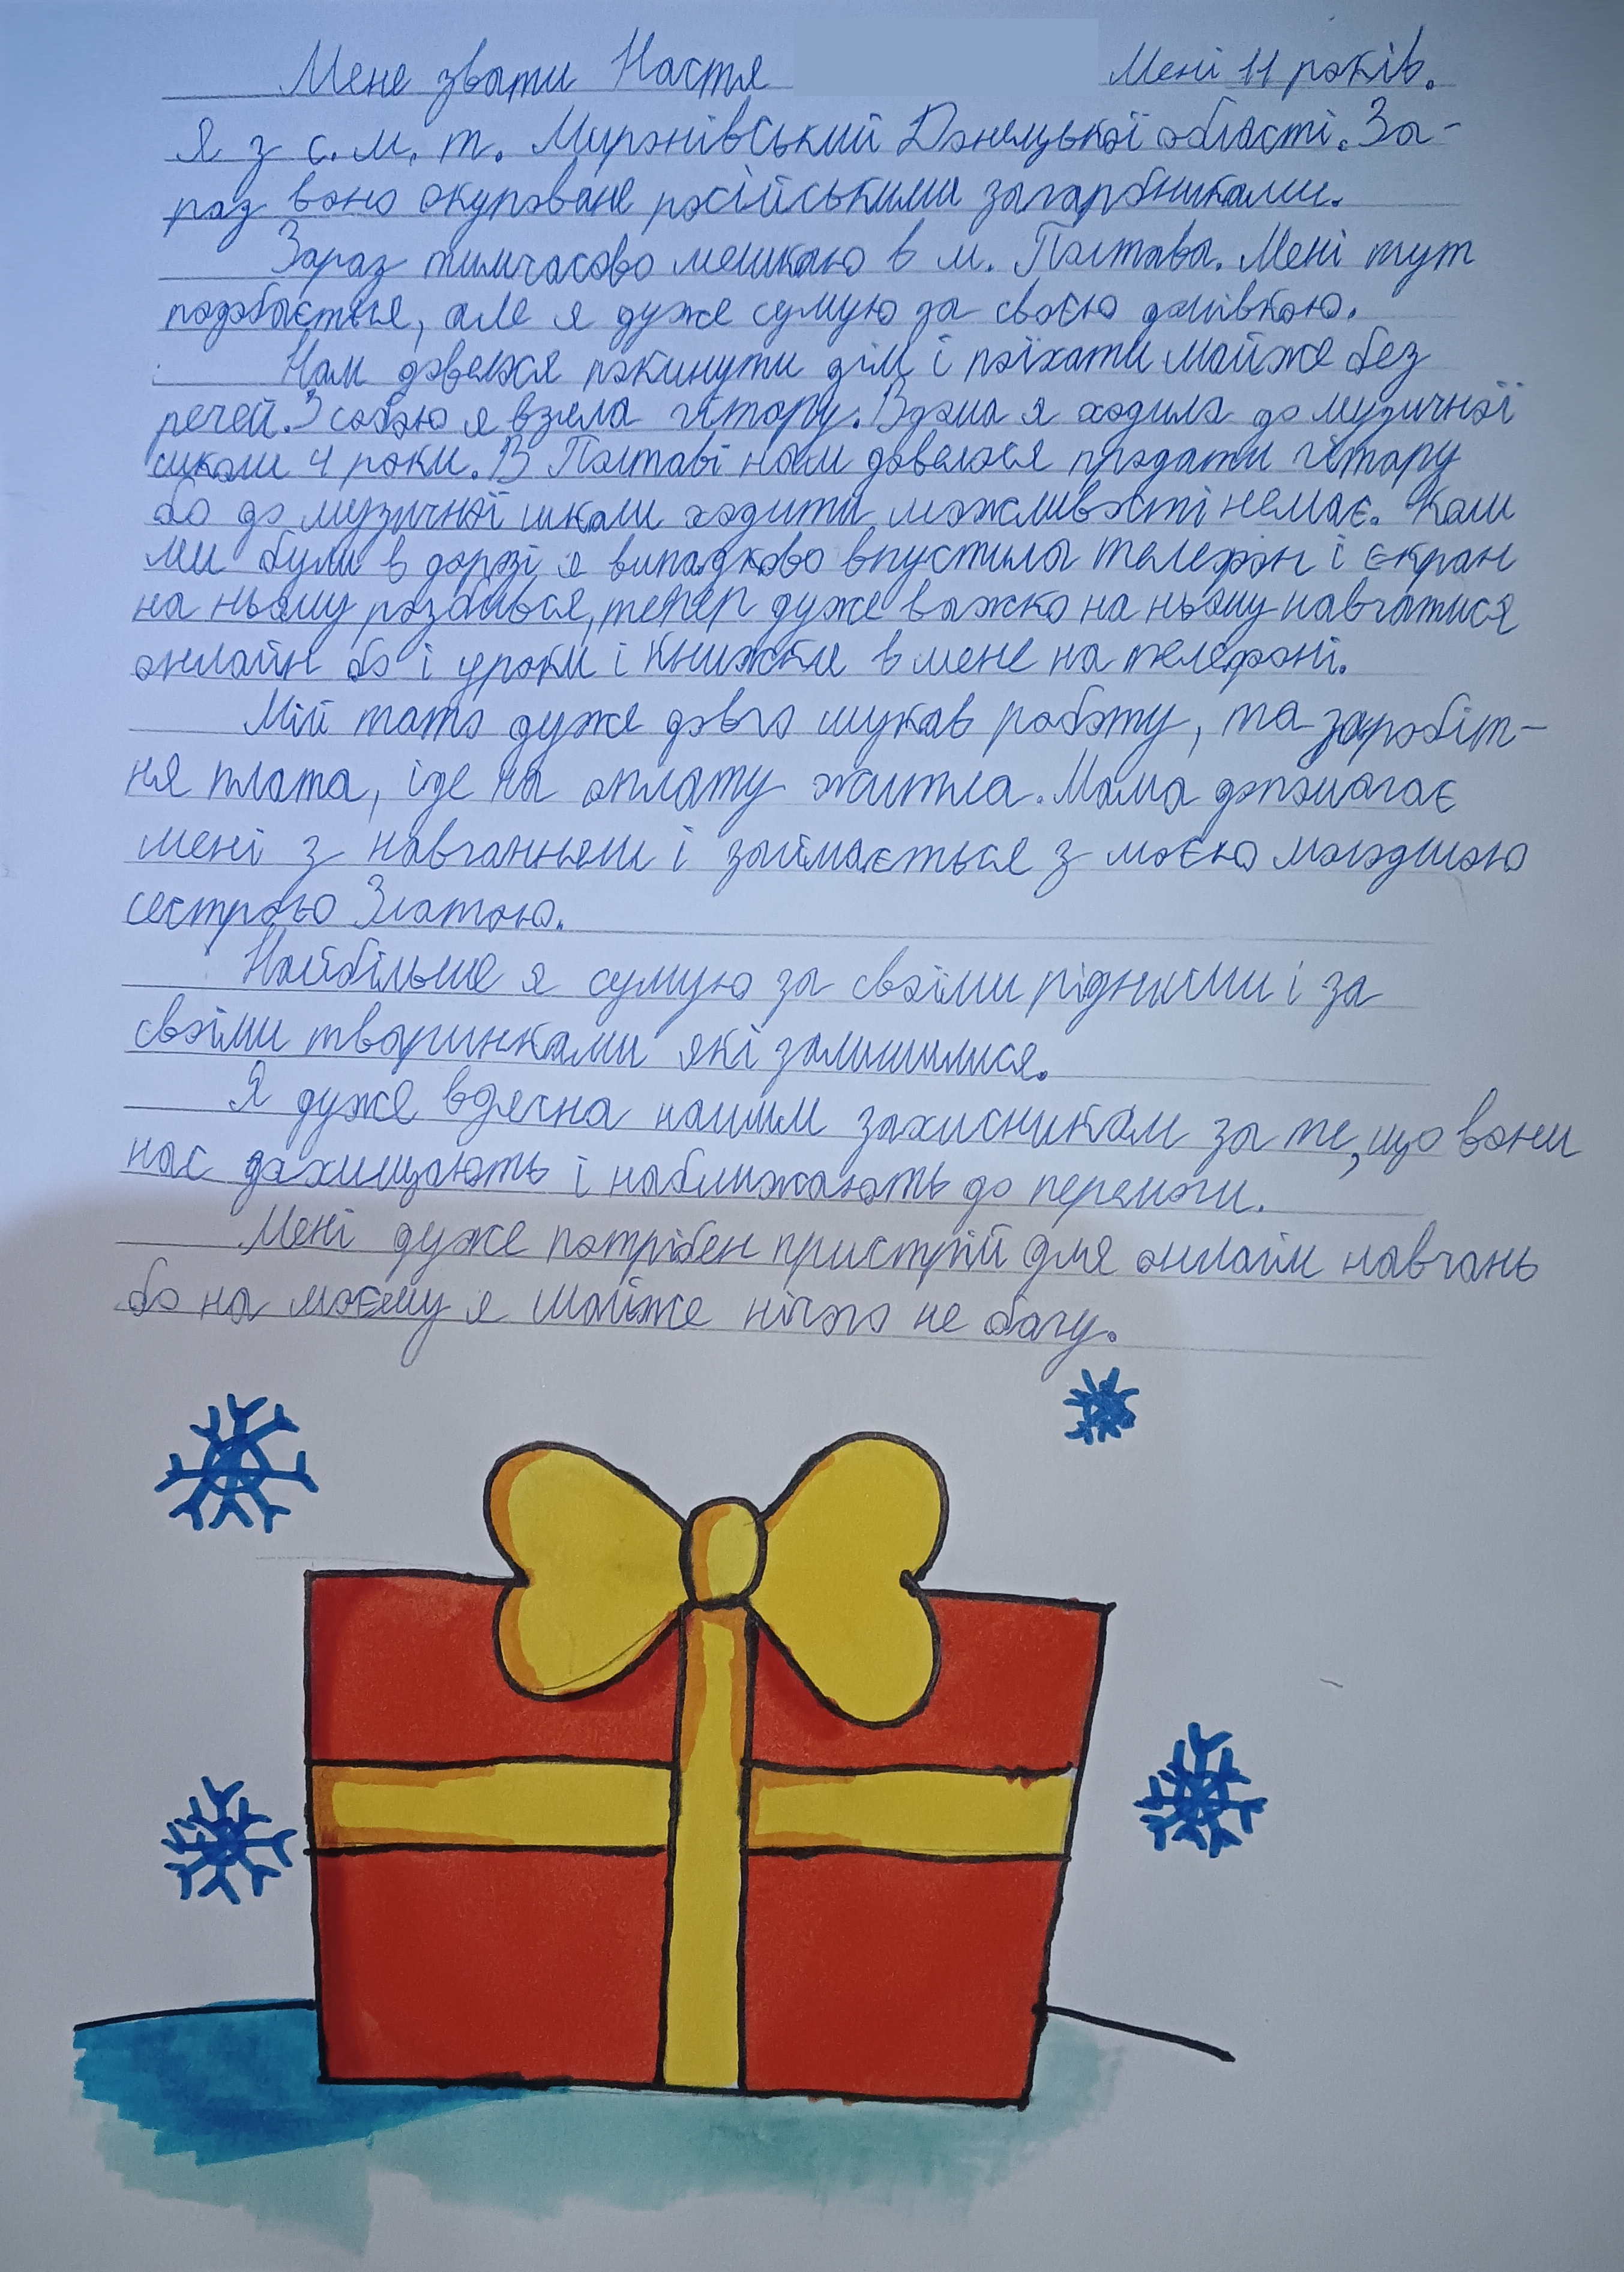 Мене звати Настя Мені 11 років.
Я з с.м.т. Миронівський Донецької області. За-
раз воно окуповане російськими загарбниками.
Зараз тимчасово мешкаю в м. Полтава. Мені тут
подобається, але я дуже сумую за своєю домівкою.
Нам довелося покинути дім і поїхати майже без
речей. З собою я взяла гітару. Вдома я ходила до музичної
школи 4 роки. В Полтаві нам довелося продати гітару
бо до музичної школи ходити можливості немає. Коли
ми були в дорозі я випадково впустила телефон і екран
на ньому розбився, тепер дуже важко на ньому навчатися
онлайн бо і уроки і книжки в мене на телефоні.
Мій тато дуже довго шукав роботу, та заробіт-
ня плата, іде на оплату житла. Мама допомагає
мені з навчанням і займається з моєю молодшою
сестрою Златою.
Найбільше я сумую за своїми рідними і за
своїми тваринками які залишилися.
Я дуже вдячна нашим захисникам за те, що вони
нас захищають і наближають до перемоги.
Мені дуже потрібен пристрій для онлайн навчань
бо на моєму я майже нічого не бачу.